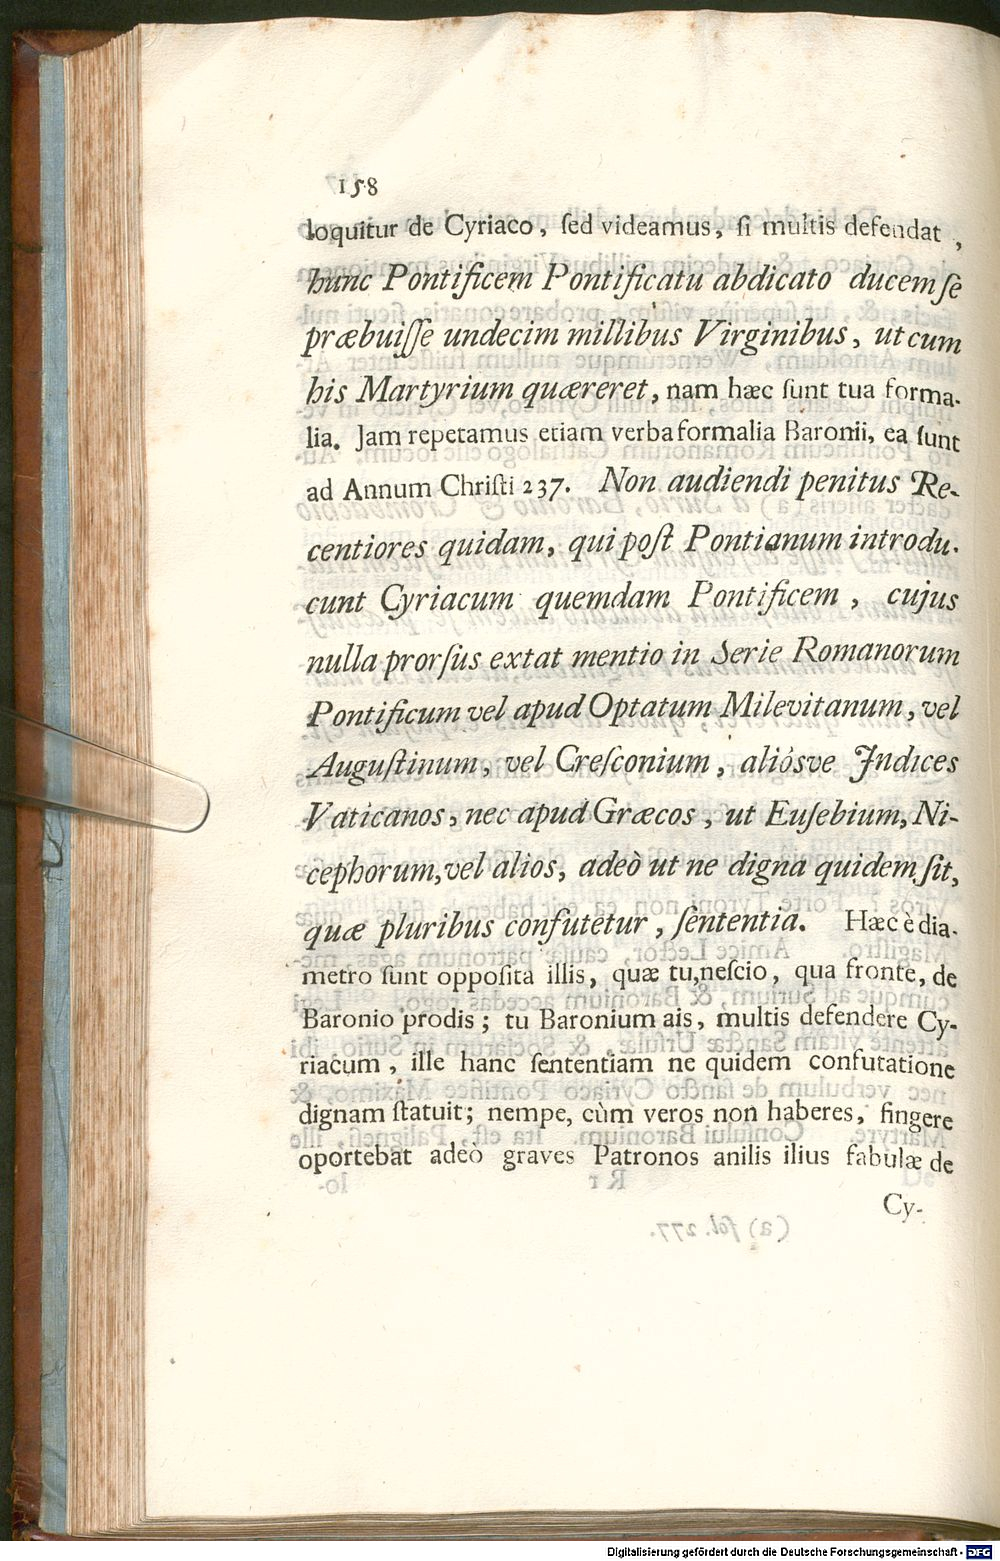 158
loquitur de Cyriaco, ſed videamus, ſi multis defendat,
hunc Pontificem Pontificatu abdicato ducem ſe
præbuiſſe undecim millibus Virginibus, ut cum
his Martyrium quæreret, nam hæc ſunt tua forma-
lia. Jam repetamus etiam verba formalia Baronii, ea ſunt
ad Annum Chriſti 237. Non audiendi penitus Re-
centiores quidam, qui poſt Pontianum introdu-
cunt Cyriacum quemdam Pontificem, cujus
nulla prorſus extat mentio in Serie Romanorum
Pontificum vel apud Optatum Milevitanum, vel
Auguſtinum, vel Creſconium, aliósve Jndices
Vaticanos, nec apud Græcos, ut Euſebium, Ni-
cephorum, vel alios, adeò ut ne digna quidem ſit,
quæ pluribus confutetur, ſententia. Hæc è dia-
metro ſunt oppoſita illis, quæ tu, neſcio, qua fronte, de
Baronio prodis; tu Baronium ais, multis defendere Cy-
riacum, ille hanc ſententiam ne quidem confutatione
dignam ſtatuit; nempe, cùm veros non haberes, fingere
oportebat adeò graves Patronos anilis ilius fabulæ de
Cy-
Digitalisierung gefördert durch die Deutsche Forschungsgemeinschaft - DFG